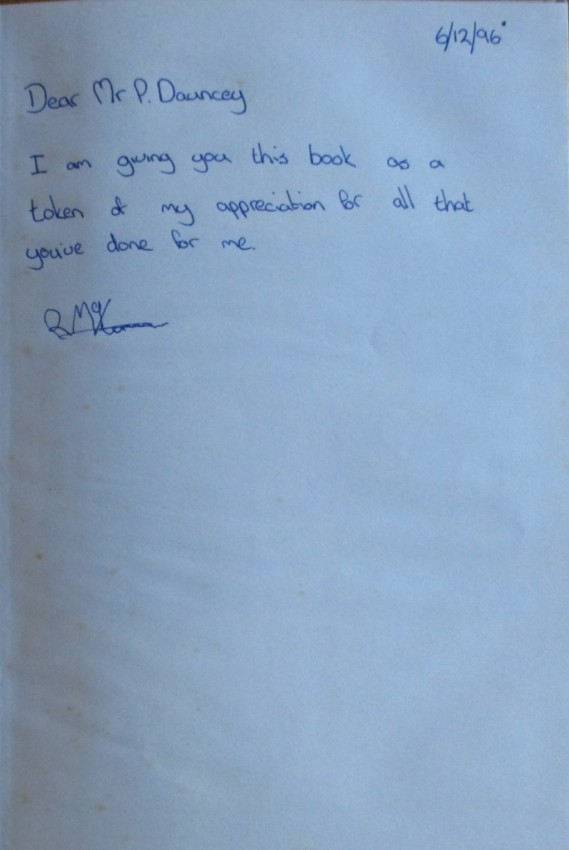 6/12/96
Dear Mr P. Dauncey
I am giving you this book as a
token of my appreciation for all that
you've done for me.